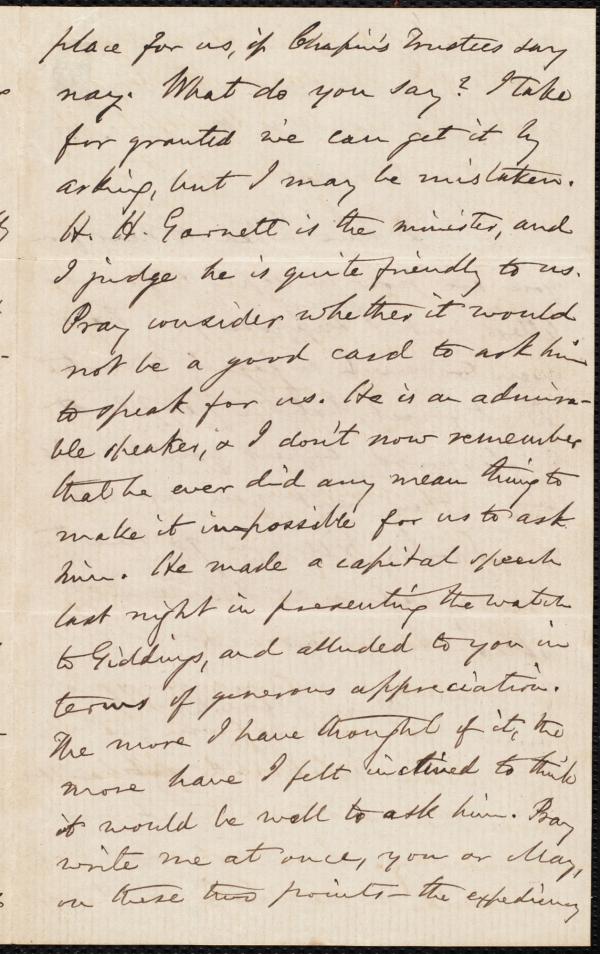 place for us, if Chapin's Trustees say
nay. What do you say? I take
for granted we can get it by
asking, but I may be mistaken.
H. H. Garnett is the minister, and
I judge he is quite friendly to us.
Pray consider whether it would
not be a good card to ask him
to speak for us. He is an admira-
ble speaker, & I don't now remember
that he ever did any mean thing to
make it impossible for us to ask
him. He made a capital speech
last night in presenting the watch
to Giddings, and alluded to you in
terms of generous appreciation.
The more I have thought of it, the
more have I felt inclined to think
it would be well to ask him. Pray
write me at once, you or May,
on these two points — the expediency